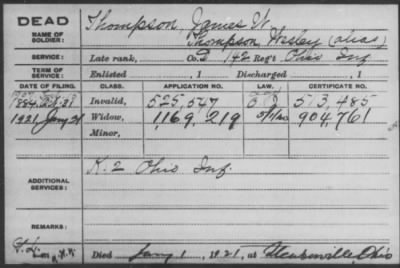 DEAD
NAME OF SOLDIER:
Thompson, James W.
Thompson, Wesley (alias)
SERVICE:
Late rank, Co. 142 Reg't Ohio Inf.
TERM OF SERVICE:
Enlisted , 1 Discharged , 1
DATE OF FILING. CLASS. APPLICATION NO. LAW. CERTIFICATE NO.
1884 Invalid, 525,547 513,485
1921, Jany Widow, 1,169,219 904,761
Minor,
ADDITIONAL SERVICES:
K. 2 Ohio Inf.
REMARKS:
Died Jany 1, 1921, at Steubenville, Ohio